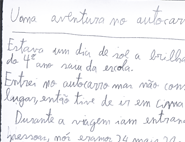 Uma aventura no autocar
Estava um dia de sol a brilha
do 4º ano saiu da escola.
Entrei no autocarro mas não con
lugar, então tive de ir em cima
Durante a viagem iam entran
pessoas, nós éramos 24 mais